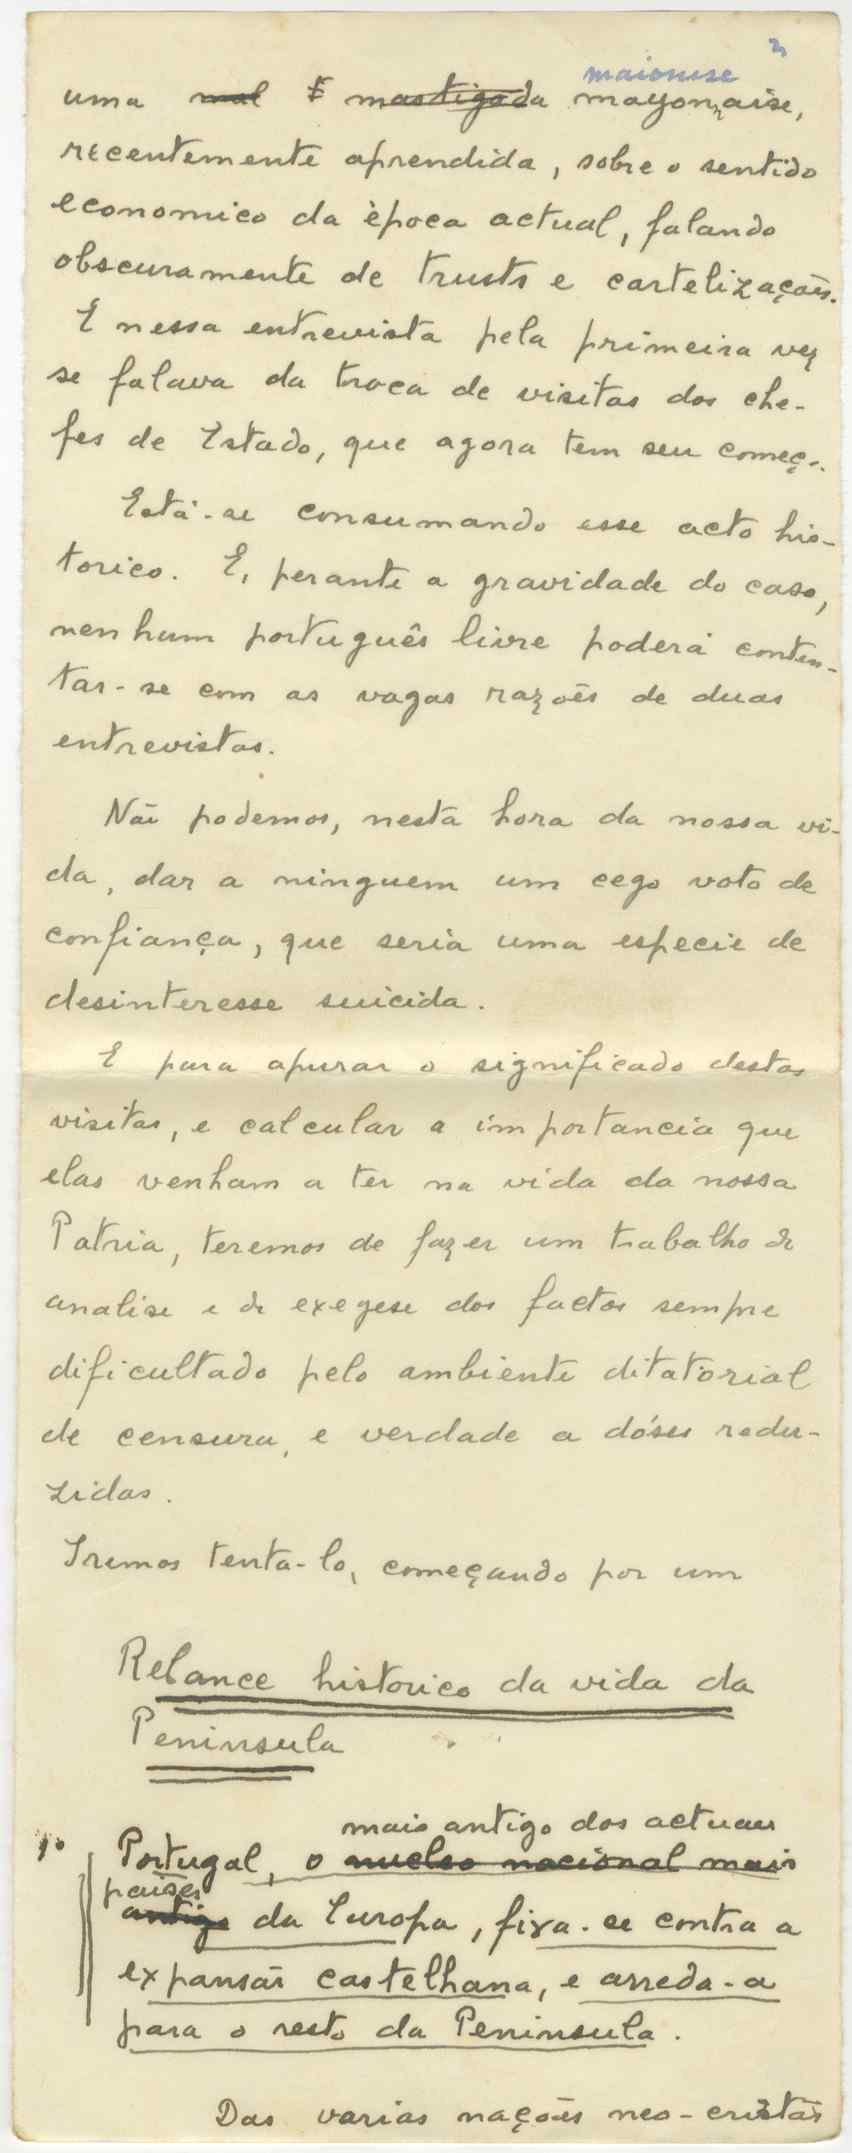 2
maionese
uma mal mastigada mayonnaise,
recentemente aprendida, sobre o sentido
economico da època actual, falando
obscuramente de trusts e cartelizações.
E nessa entrevista pela primeira vez
se falava da troca de visitas dos che-
fes de Estado, que agora tem seu começo.
Está-se consumando esse acto his-
torico. E, perante a gravidade do caso,
nenhum português livre poderá conten-
tar-se com as vagas razões de duas
entrevistas.
Não podemos, nesta hora da nossa vi-
da, dar a ninguem um cego voto de
confiança, que seria uma especie de
desinteresse suicida.
E para apurar o significado destas
visitas, e calcular a importancia que
elas venham a ter na vida da nossa
Patria, teremos de fazer um trabalho de
analise e de exegese dos factos sempre
dificultado pelo ambiente ditatorial
de censura, e verdade a dóses redu-
zidas.
Iremos tenta-lo, começando por um
Relance historico da vida da
Peninsula
mais antigo dos actuaes
1º Portugal, o nucleo nacional mais
países
antigo da Europa, fixa-se contra a
expansão castelhana, e arreda-a
para o resto da Peninsula.
Das varias nações neo-cristãs